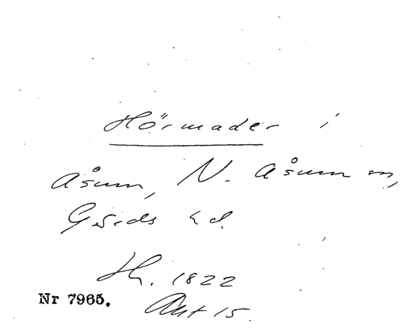 Hörmader i
Åsum, N. Åsum sn,
Gärds hd.
Hh. 1822
Akt 15.
Nr 7965.